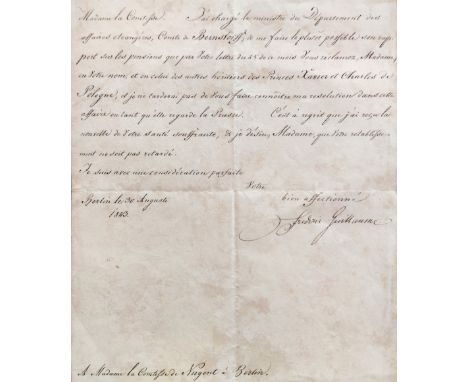 Madame la Comtesse. J'ai chargé le ministre du Département des
affaires étrangères, Comte de Bernstorff, de me faire le plutôt possible son rap-
port sur les pensions que par Votre lettre du 25 de ce mois Vous réclamez, Madame,
en Votre nom et en celui des autres héritiers des Princes Xavier et Charles de
Pologne, et je ne tarderai pas de Vous faire connoître ma résolution dans cette
affaire en tant qu'elle regarde la Prusse. C'est à regret que j'ai reçu la
nouvelle de Votre santé souffrante, & je désire, Madame, que Votre rétablisse-
ment ne soit pas retardé.
Je suis avec une considération parfaite
Votre
Berlin le 30 Auguste bien affectionné
1823. Fréderic Guillaume
A Madame la Comtesse de Nugent à Berlin.